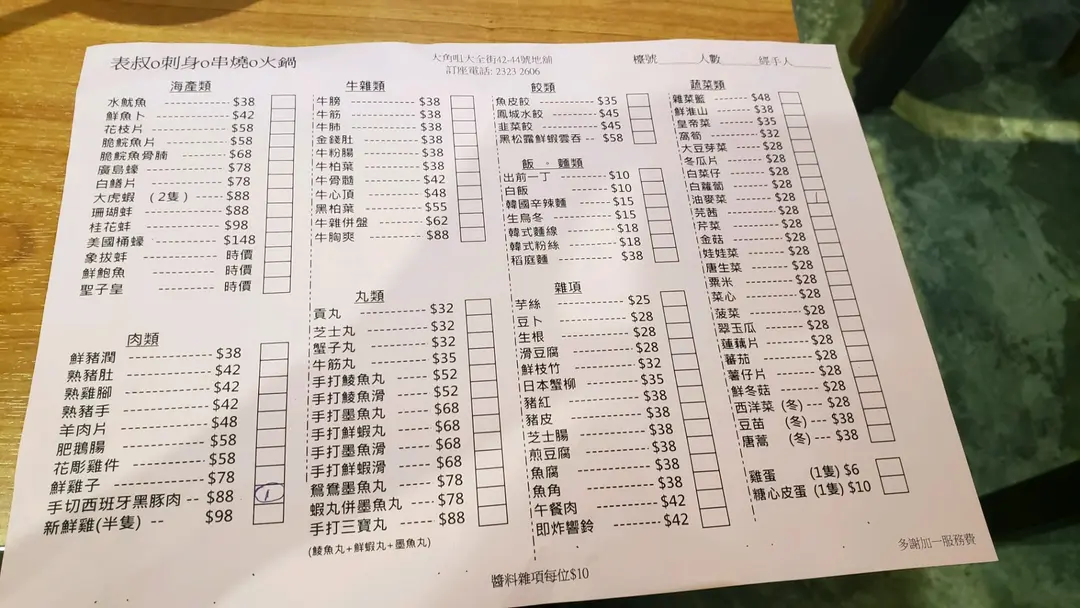 表叔o刺身o串燒o火鍋
大角咀大全街42-44號地舖
訂座電話: 2323 2606
檯號______人數______經手人______
海產類
水魷魚 $38
鮮魚卜 $42
花枝片 $58
脆鯇魚片 $58
脆鯇魚骨腩 $68
廣島蠔 $78
白鱔片 $78
大虎蝦 (2隻) $88
珊瑚蚌 $88
桂花蚌 $98
美國桶蠔 $148
象拔蚌 時價
鮮鮑魚 時價
聖子皇 時價
肉類
鮮豬潤 $38
熟豬肚 $42
熟雞腳 $42
熟豬手 $42
羊肉片 $48
肥鵝腸 $58
花彫雞件 $58
鮮雞子 $78
手切西班牙黑豚肉 $88 1
新鮮雞(半隻) $98
牛雜類
牛膀 $38
牛筋 $38
牛肺 $38
金錢肚 $38
牛粉腸 $38
牛柏葉 $38
牛骨髓 $42
牛心頂 $48
黑柏葉 $55
牛雜併盤 $62
牛胸爽 $88
丸類
貢丸 $32
芝士丸 $32
蟹子丸 $32
牛筋丸 $35
手打鯪魚丸 $52
手打鯪魚滑 $52
手打墨魚丸 $68
手打鮮蝦丸 $68
手打墨魚滑 $68
手打鮮蝦滑 $68
鴛鴦墨魚丸 $78
蝦丸併墨魚丸 $78
手打三寶丸 $88
(鯪魚丸+鮮蝦丸+墨魚丸)
餃類
魚皮餃 $35
鳳城水餃 $45
韭菜餃 $45
黑松露鮮蝦雲吞 $58
飯。麵類
出前一丁 $10
白飯 $10
韓國辛辣麵 $15
生烏冬 $15
韓式麵線 $18
韓式粉絲 $18
稻庭麵 $38
雜項
芋絲 $25
豆卜 $28
生根 $28
滑豆腐 $28
鮮枝竹 $32
日本蟹柳 $35
豬紅 $38
豬皮 $38
芝士腸 $38
煎豆腐 $38
魚腐 $38
魚角 $38
午餐肉 $42
即炸響鈴 $42
蔬菜類
雜菜籃 $48
鮮淮山 $38
皇帝菜 $35
萵筍 $32
大豆芽菜 $28
冬瓜片 $28
白菜仔 $28
白蘿蔔 $28
油麥菜 $28 1
芫茜 $28
芹菜 $28
金菇 $28
娃娃菜 $28
唐生菜 $28
粟米 $28
菜心 $28
菠菜 $28
翠玉瓜 $28
蓮藕片 $28
蕃茄 $28
薯仔片 $28
鮮冬菇 $28
西洋菜 (冬) $28
豆苗 (冬) $38
唐蒿 (冬) $38
雞蛋 (1隻) $6
糖心皮蛋 (1隻) $10
醬料雜項每位$10
多謝加一服務費